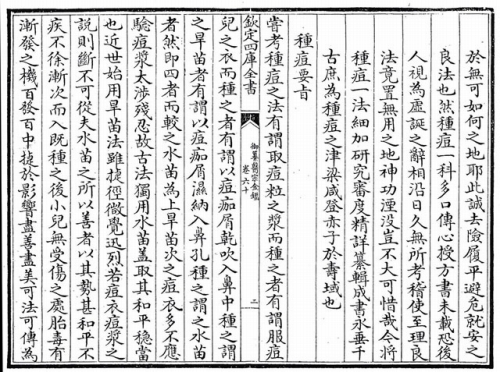 於無可如何之地耶此誠去險履平避危就安之
良法也然種痘一科多口傳心授方書未載恐後
人視為虛誕之辭相沿日久無所考稽使至理良
法竟置無用之地神功湮沒豈不大可惜哉今將
種痘一法細加研究審度精詳纂輯成書永垂千
古庶為種痘之津梁咸登赤子於壽域也
種痘要旨
嘗考種痘之法有謂取痘粒之漿而種之者有謂服痘
欽定四庫全書
御纂醫宗金鑑
卷六十
二
兒之衣而種之者有謂以痘痂屑乾吹入鼻中種之謂
之旱苗者有謂以痘痂屑濕納入鼻孔種之謂之水苗
者然即四者而較之水苗為上旱苗次之痘衣多不應
驗痘漿太涉殘忍故古法獨用水苗蓋取其和平穩當
也近世始用旱苗法雖捷徑微覺迅烈若痘衣痘漿之
說則斷不可從夫水苗之所以善者以其勢甚和平不
疾不徐漸次而入既種之後小兒無受傷之處胎毒有
漸發之機百發百中捷於影響盡善盡美可法可傳為